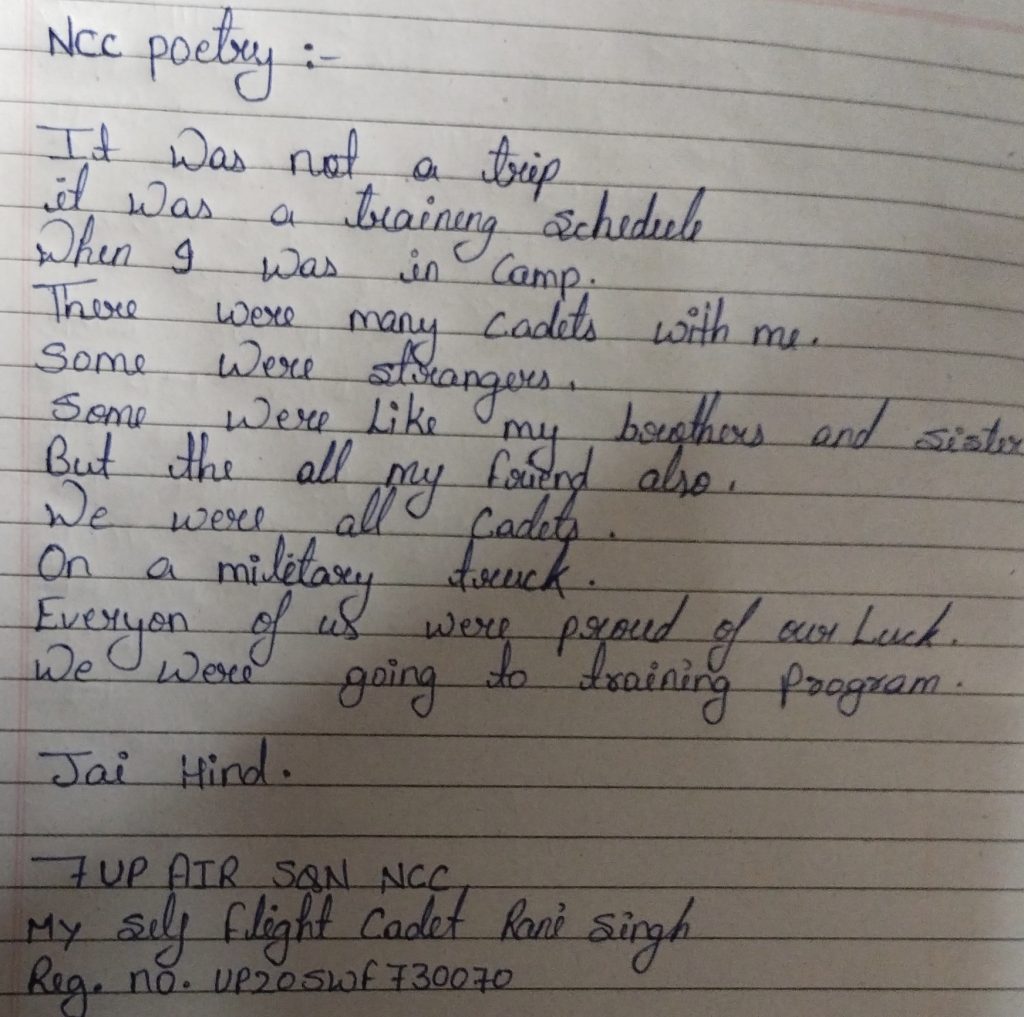 NCC poetry :-
It was not a trip
it was a training schedule
When I was in Camp.
There were many Cadets with me.
Some were strangers.
Some were Like my brothers and sister
But the all my friend also.
We were all Cadets.
On a military truck.
Everyon of us were proud of our Luck.
We were going to training program.
Jai Hind.
7 UP AIR SQN NCC,
MY Self flight Cadet Rani Singh
Reg. no. UP20SWF730070